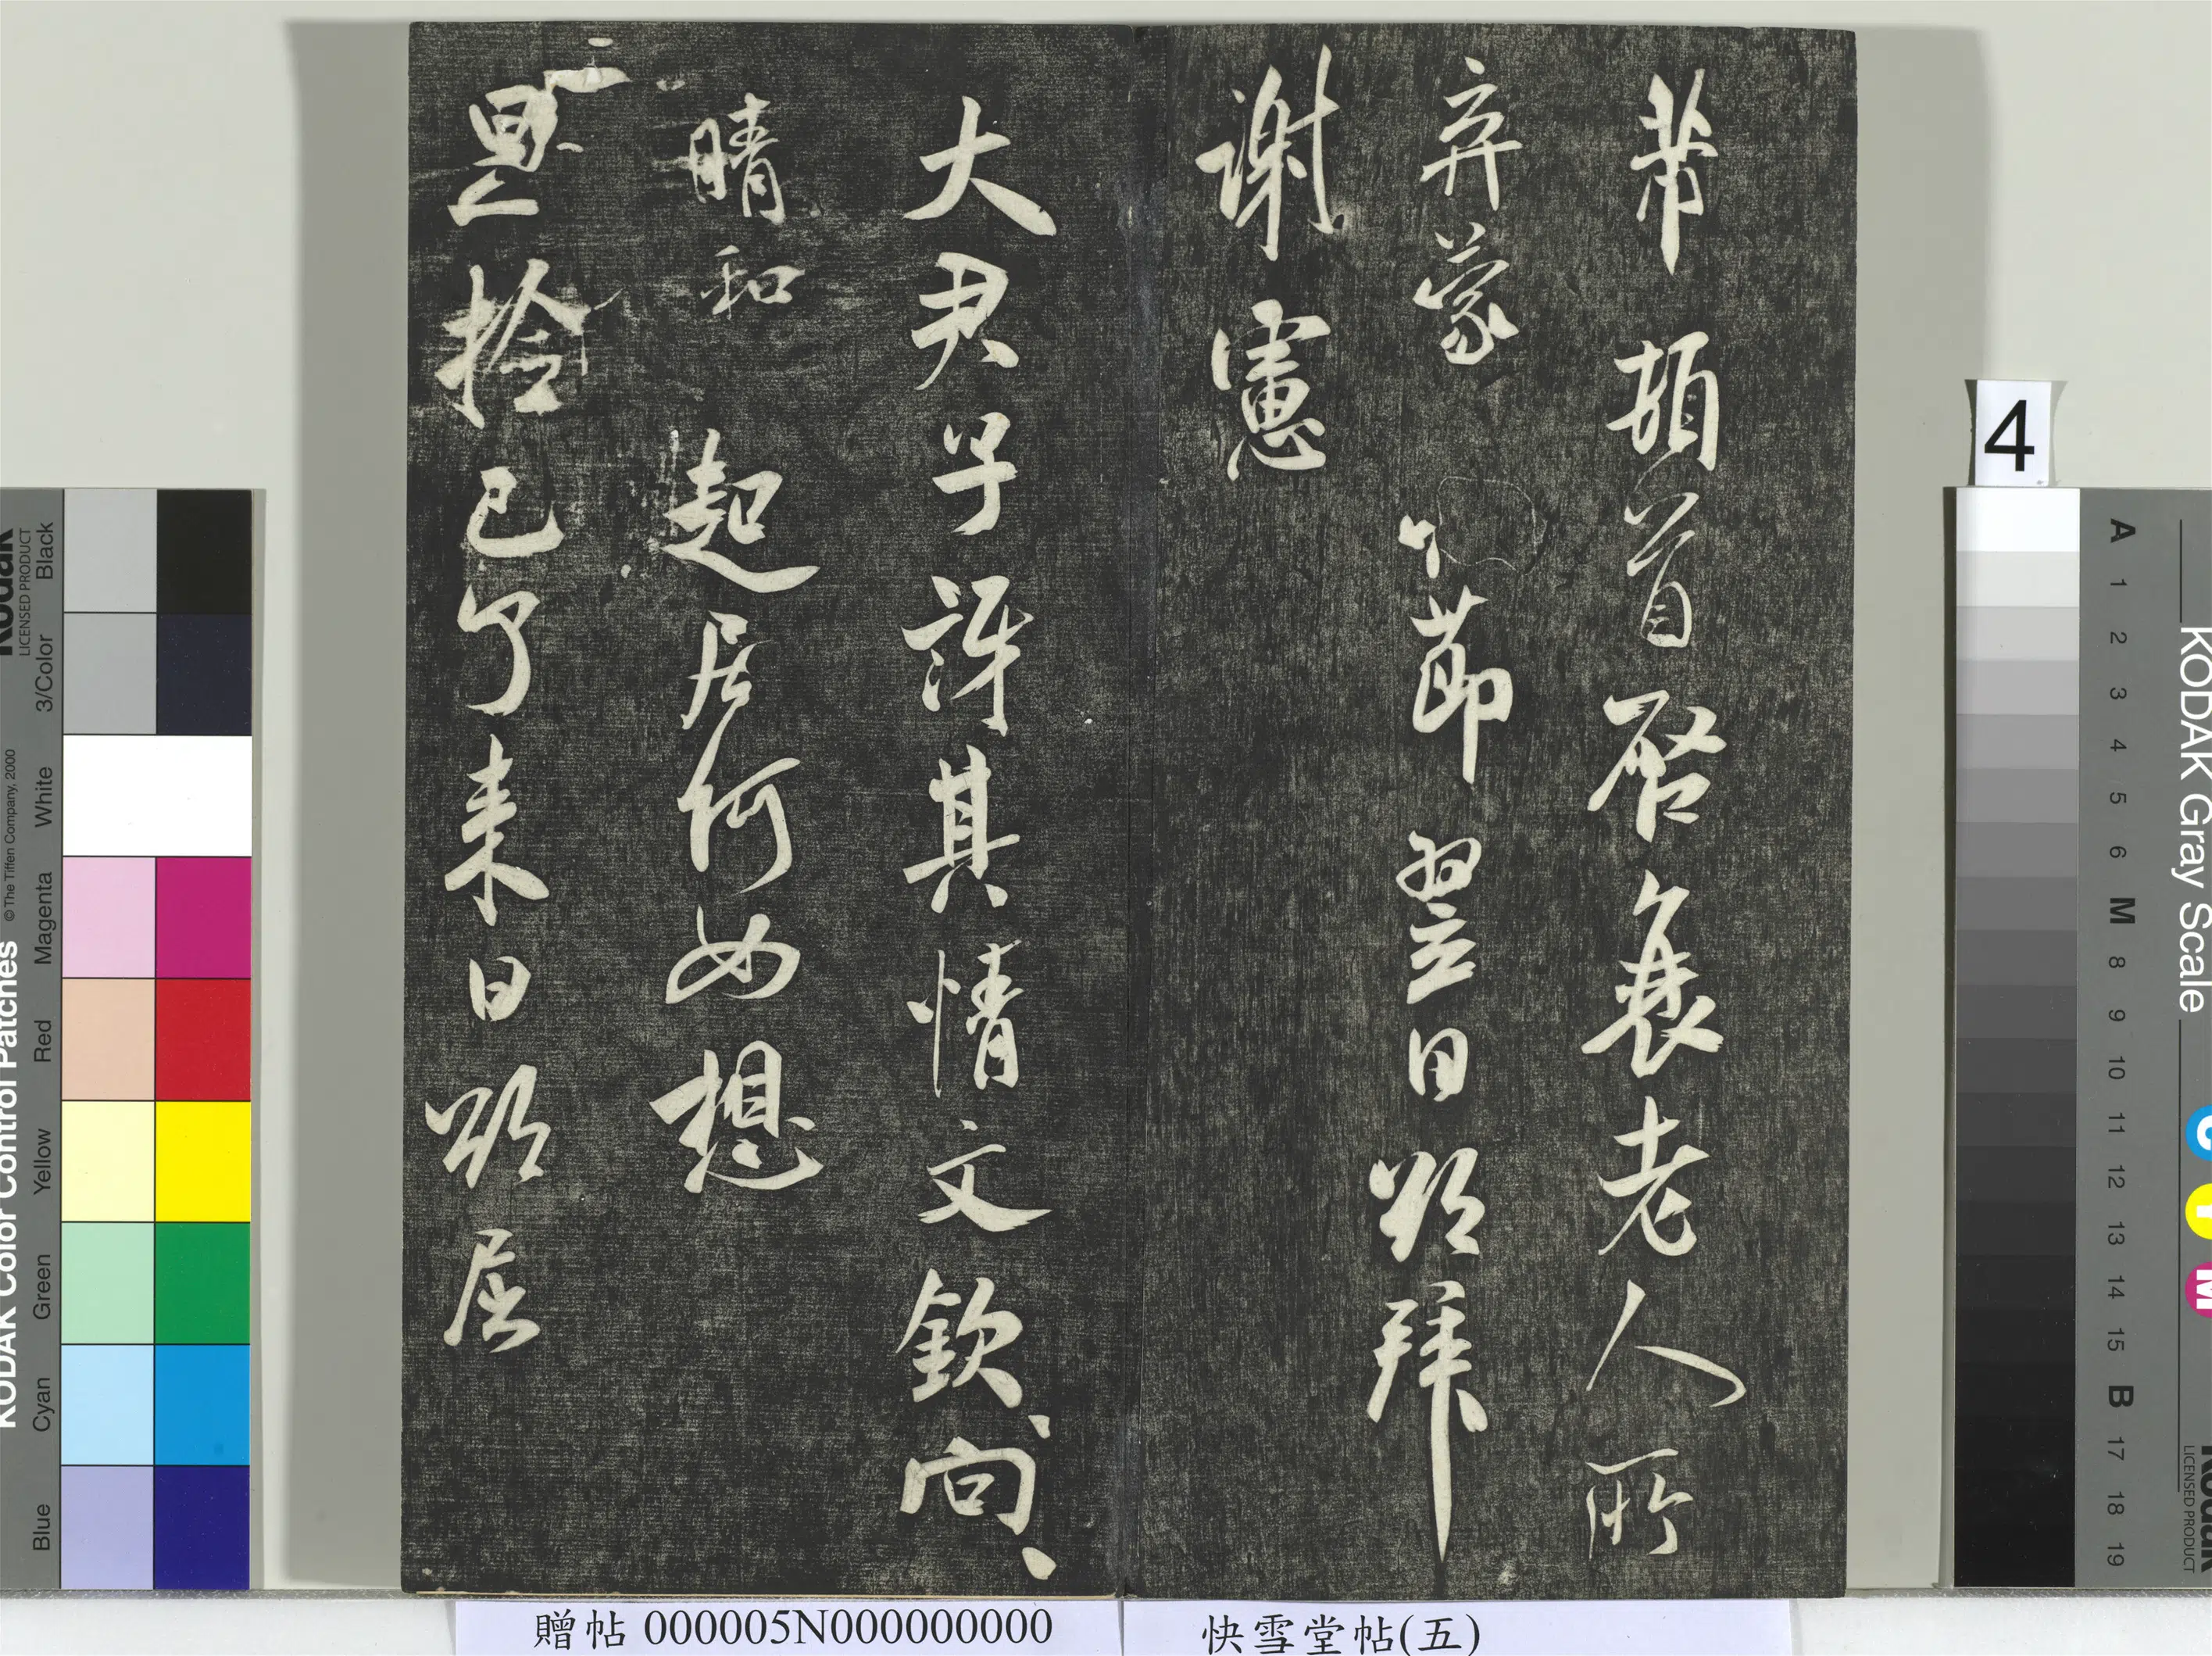 芾頓首啓衰老人所
弃蒙 節翌日欵拜
謝憲
大君子許其情文欽、向、
晴和 起居何如想
撿已了來日欵屈
贈帖 000005N000000000
快雪堂帖(五)
4
KODAK Color Control Patches
© The Tiffen Company, 2000
Kodak
LICENSED PRODUCT
Blue Cyan Green Yellow Red Magenta White 3/Color Black
KODAK Gray Scale
C Y M
Kodak
LICENSED PRODUCT
A 1 2 3 4 5 6 M 8 9 10 11 12 13 14 15 B 17 18 19